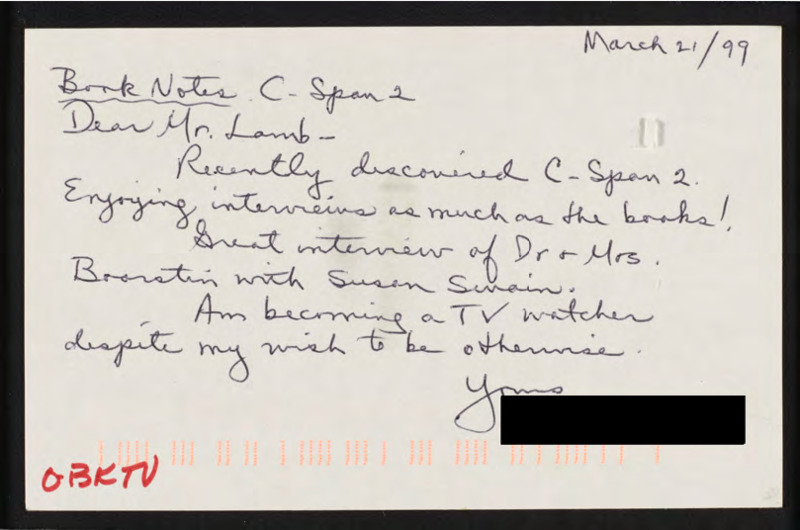 March 21/99
Book Notes C-Span 2
Dear Mr. Lamb-
Recently discovered C-Span 2.
Enjoying interviews as much as the books!
Great interview of Dr & Mrs.
Boorstin with Susan Swain.
Am becoming a TV watcher
despite my wish to be otherwise.
Yours
OBKTV